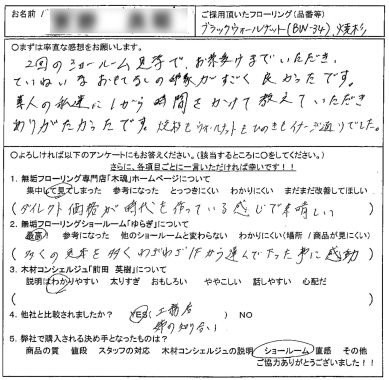 お名前
ご採用頂いたフローリング(品番等)
ブラックウォールナット(BW-34)、焼杉
○まずは率直な感想をお願いします。
2回のショールーム見学で、お茶菓子までいただき、
ていねいなおもてなしの印象がすごく良かったです。
素人の私達に1から時間をかけて教えていただき
ありがたかったです。焼杉もウォルナットもひのきもイメージ通りでした。
○よろしければ以下のアンケートにもお答えください。(該当するところに○をしてください。)
さらに、各項目ごとに一言いただければ幸いです!!
1. 無垢フローリング専門店「木魂」ホームページについて
集中して見てしまった 参考になった とっつきにくい わかりにくい まだまだ改善してほしい
(ダイレクト価格が時代を作っている感じで素晴らしい)
2. 無垢フローリングショールーム「ゆらぎ」について
最高! 参考になった 他のショールームと変わらない わかりにくい(場所 / 商品が見にくい)
(多くの見本を多くわざわざ1から運んで下った事に感動)
3. 木材コンシェルジュ「前田 英樹」について
説明はわかりやすい 太りすぎ おもしろい ややこしい 話しやすい 心配だ
( )
4. 他社と比較されましたか? YES(工務店 NO
弊の知り合い)
5. 弊社で購入される決め手となったものは?
商品の質 値段 スタッフの対応 木材コンシェルジュの説明 ショールーム 直感 その他
ご協力ありがとうございました!!